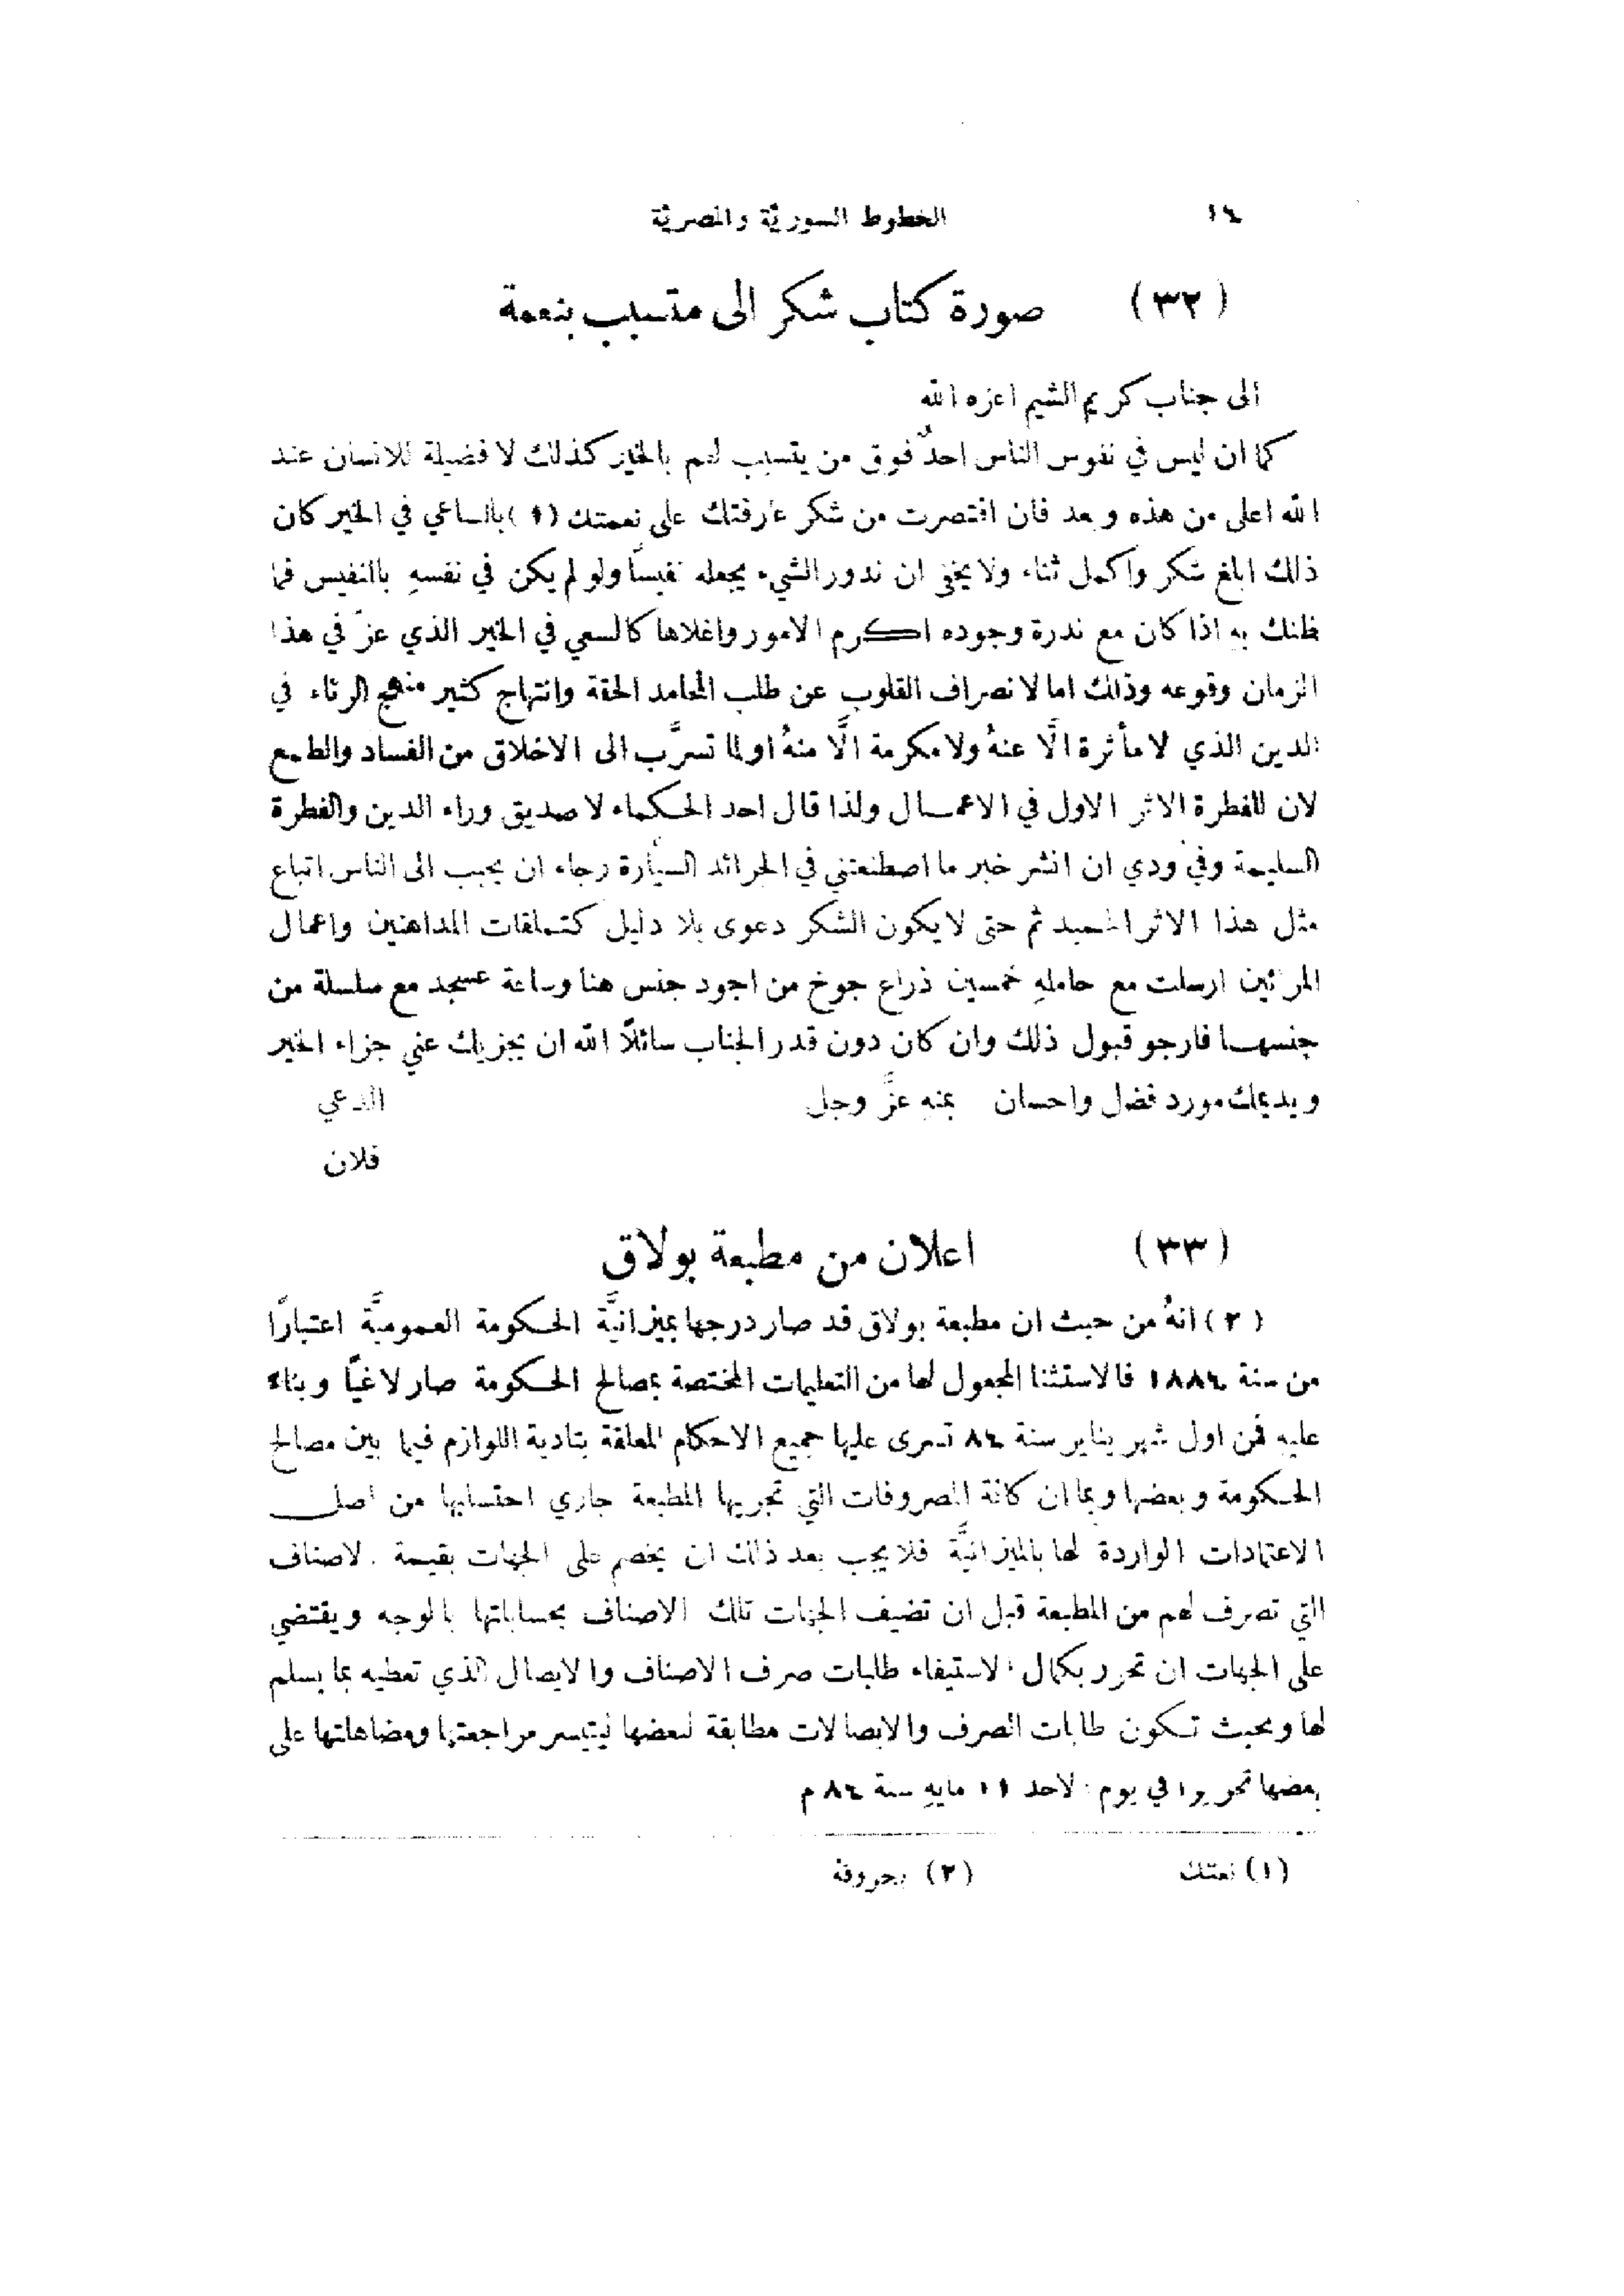 ١٤ الخطوط السوريَّة والمصريَّة
(٣٢) صورة كتاب شكر الى متسبب بنعمة
الى جناب كريم الشيم اعزه الله
كما ان ليس في نفوس الناس احدٌ فوق من يتسبب لهم بالخير كذلك لا فضيلة للانسان عند
الله اعلى من هذه وبعد فان اقتصرت من شكر عارفتك على نعمتك (١) بالساعي في الخير كان
ذلك ابلغ شكر واكمل ثناء ولا يخفى ان ندور الشيء يجعله نفيساً ولو لم يكن في نفسهِ بالنفيس فما
ظنك به اذا كان مع ندرة وجوده اكرم الامور واغلاها كالسعي في الخير الذي عزَّ في هذا
الزمان وقوعه وذلك اما لانصراف القلوب عن طلب المحامد الحقة وانتهاج كثير منهج الرئاء في
الدين الذي لا مأثرة الَّا عنهُ ولا مكرمة الَّا منهُ او لما تسرَّب الى الاخلاق من الفساد والطمع
لان للفطرة الاثر الاول في الاعمال ولذا قال احد الحكماء لا صديق وراء الدين والفطرة
السليمة وفي ودي ان انشر خبر ما اصطنعتني في الجرائد السيَّارة رجاء ان يحبب الى الناس اتباع
مثل هذا الاثر الحميد ثم حتى لا يكون الشكر دعوى بلا دليل كتملقات المداهنين واعمال
المرائين ارسلت مع حاملهِ خمسين ذراع جوخ من اجود جنس هنا وساعة عسجد مع سلسلة من
جنسها فارجو قبول ذلك وان كان دون قدر الجناب سائلاً الله ان يجزيك عني جزاء الخير
ويديمك مورد فضل واحسان بمنهِ عزَّ وجل الداعي
فلان
(٣٣) اعلان من مطبعة بولاق
(٢) انهُ من حيث ان مطبعة بولاق قد صار درجها بميزانيَّة الحكومة العموميَّة اعتبارًا
من سنة ١٨٨٤ فالاستثنا المجعول لها من التعليمات المختصة بمصالح الحكومة صار لاغيًا وبناء
عليهِ فمن اول شهر يناير سنة ٨٤ تسرى عليها جميع الاحكام المعلقة بتادية اللوازم فيما بين مصالح
الحكومة وبعضها وبما ان كافة المصروفات التي تجريها المطبعة جاري احتسابها من اصل
الاعتمادات الواردة لها بالميزانيَّة فلا يجب بعد ذلك ان يخصم على الجهات بقيمة الاصناف
التي تصرف لهم من المطبعة قبل ان تضيف الجهات تلك الاصناف بحساباتها بالوجه ويقتضي
على الجهات ان تحرر بكمال الاستيفاء طلبات صرف الاصناف والايصال الذي تعطيه بما يسلم
لها وبحيث تكون طلبات الصرف والايصالات مطابقة لبعضها ليتيسر مراجعتها ومضاهاتها على
بعضها تحريرا في يوم الاحد ١١ مايهِ سنة ٨٤ م
(١) نعتك (٢) بحروفهٔ